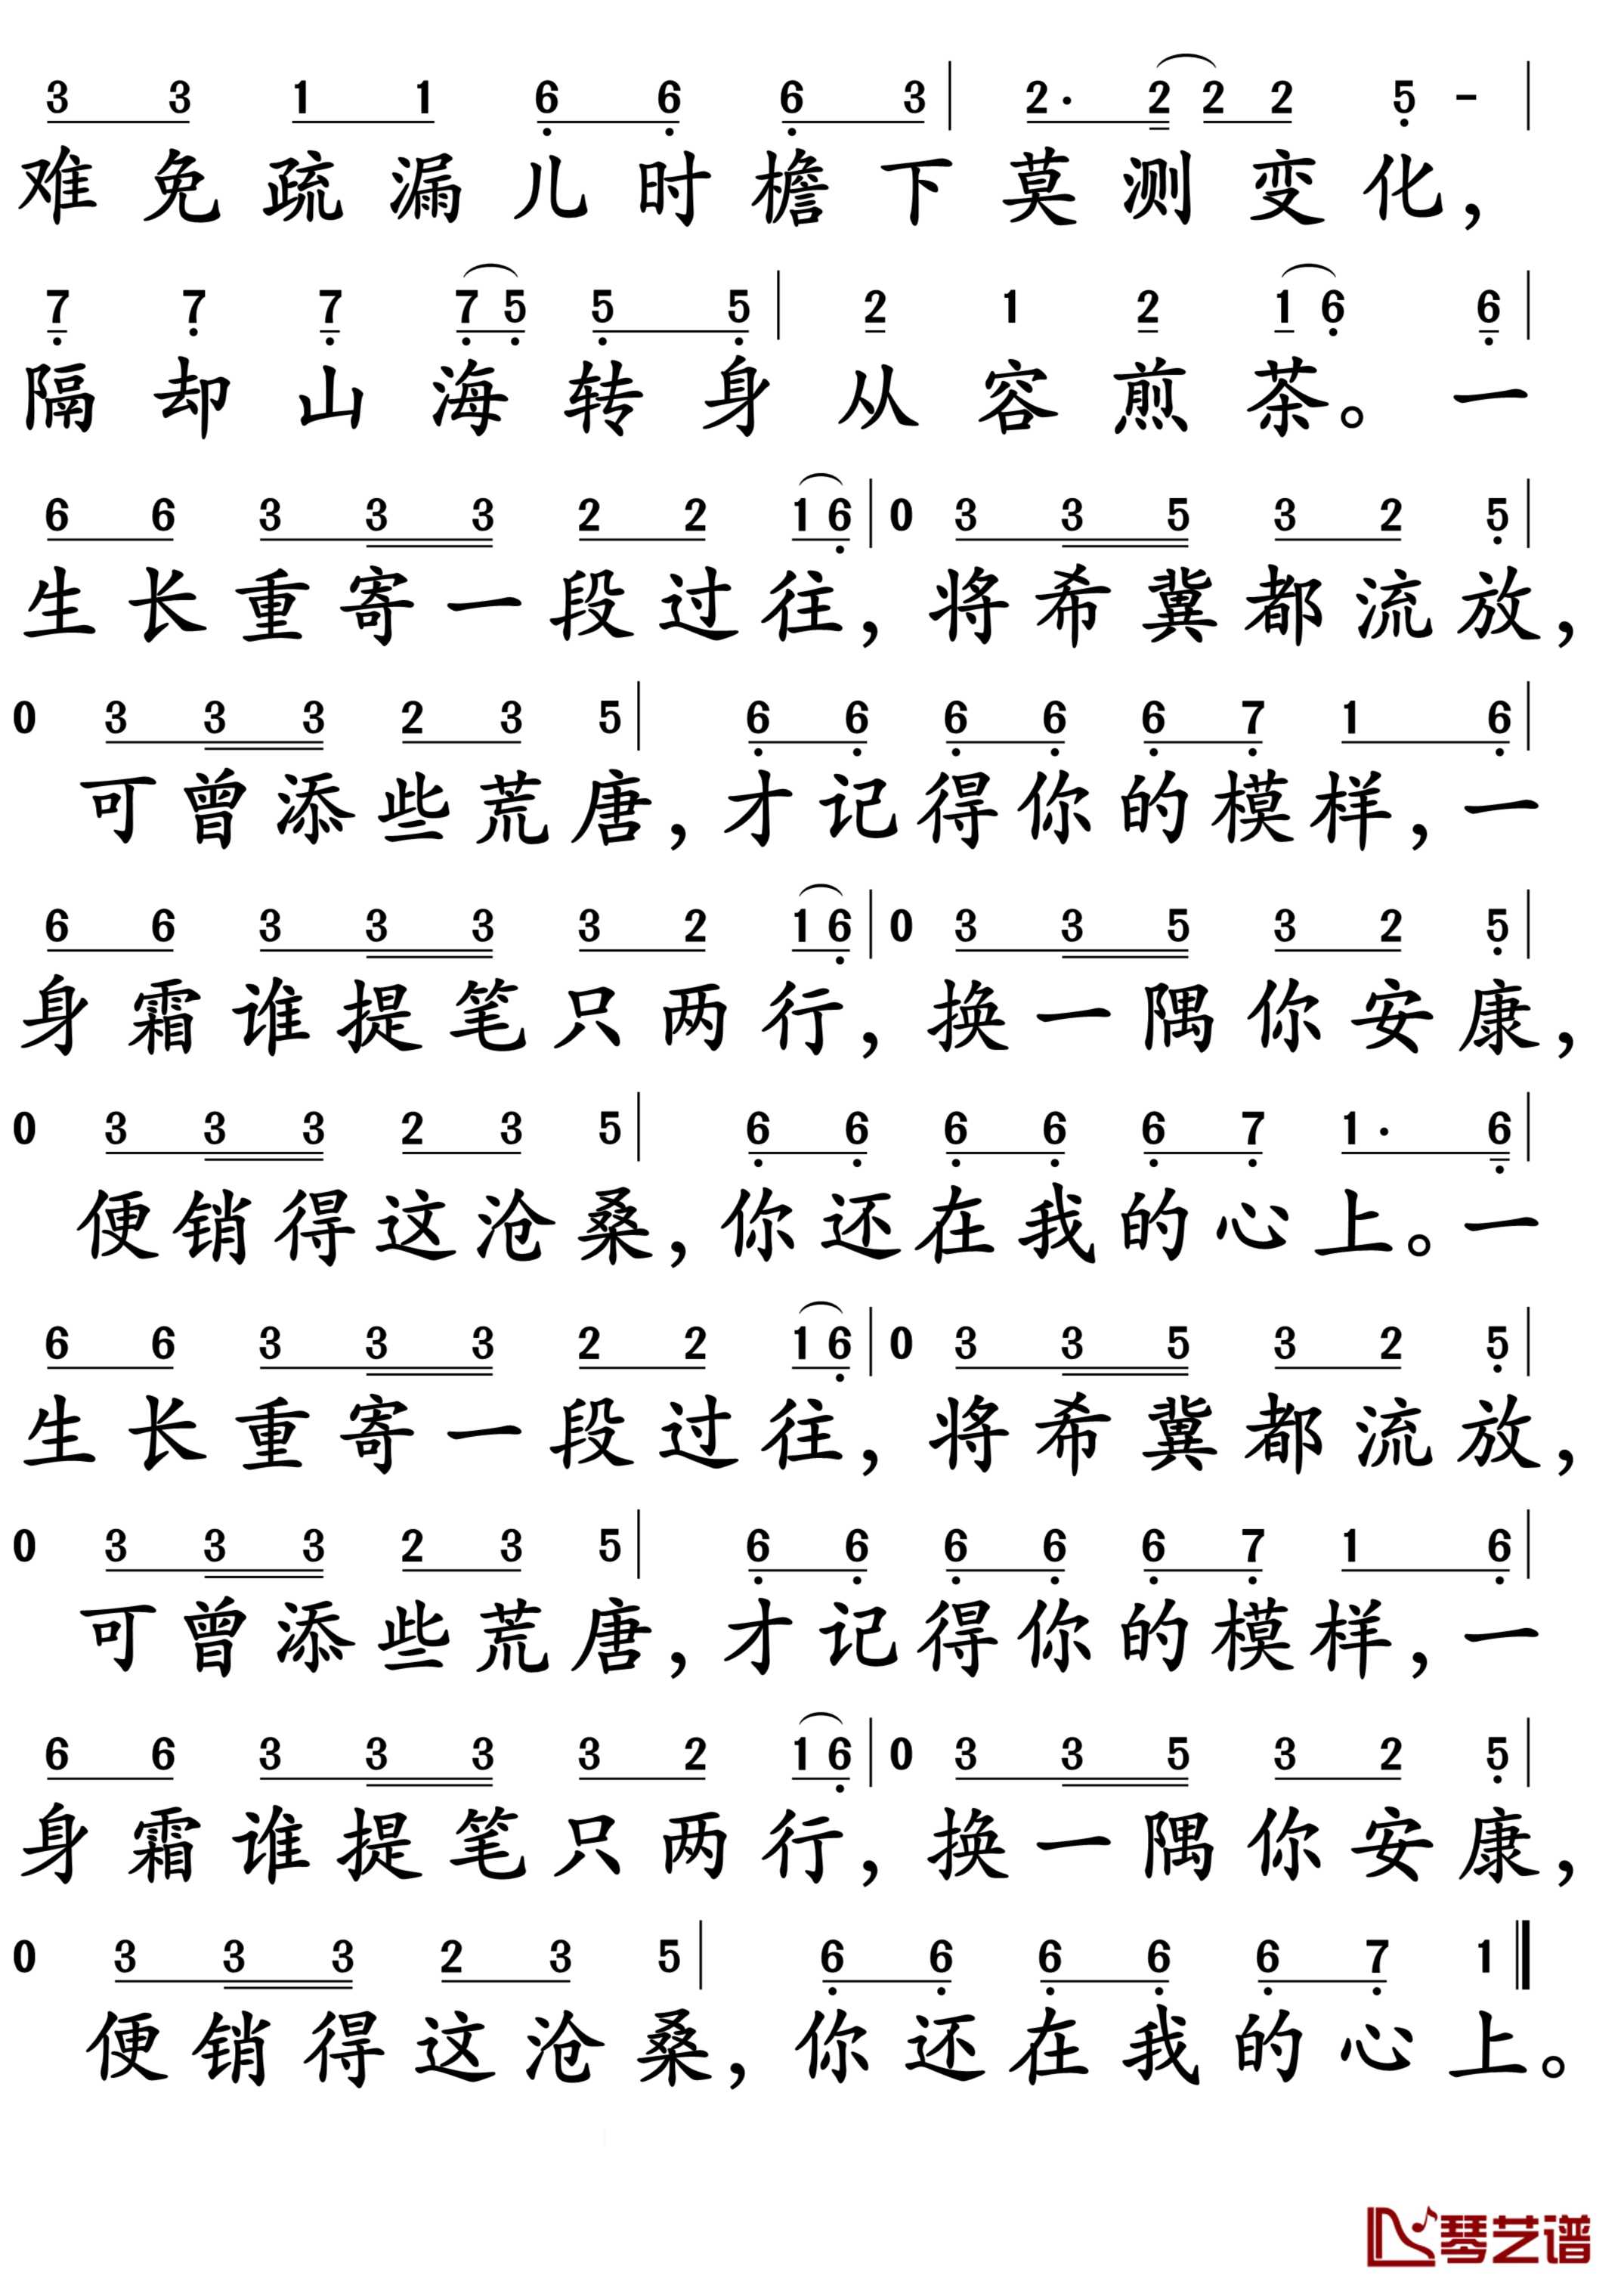 3 3 1 1 6 6 6 3 | 2· 2 2 2 5 - |
难免疏漏儿时檐下莫测变化，
7 7 7 7 5 5 5 | 2 1 2 1 6 6 |
隔却山海转身从容煎茶。一
6 6 3 3 3 2 2 1 6 | 0 3 3 5 3 2 5 |
生长重寄一段过往，将希冀都流放，
0 3 3 3 2 3 5 | 6 6 6 6 6 7 1 6 |
可曾添些荒唐，才记得你的模样，一
6 6 3 3 3 3 2 1 6 | 0 3 3 5 3 2 5 |
身霜谁提笔只两行，换一隅你安康，
0 3 3 3 2 3 5 | 6 6 6 6 6 7 1· 6 |
便销得这沧桑，你还在我的心上。一
6 6 3 3 3 2 2 1 6 | 0 3 3 5 3 2 5 |
生长重寄一段过往，将希冀都流放，
0 3 3 3 2 3 5 | 6 6 6 6 6 7 1 6 |
可曾添些荒唐，才记得你的模样，一
6 6 3 3 3 3 2 1 6 | 0 3 3 5 3 2 5 |
身霜谁提笔只两行，换一隅你安康，
0 3 3 3 2 3 5 | 6 6 6 6 6 7 1 ‖
便销得这沧桑，你还在我的心上。
琴艺谱